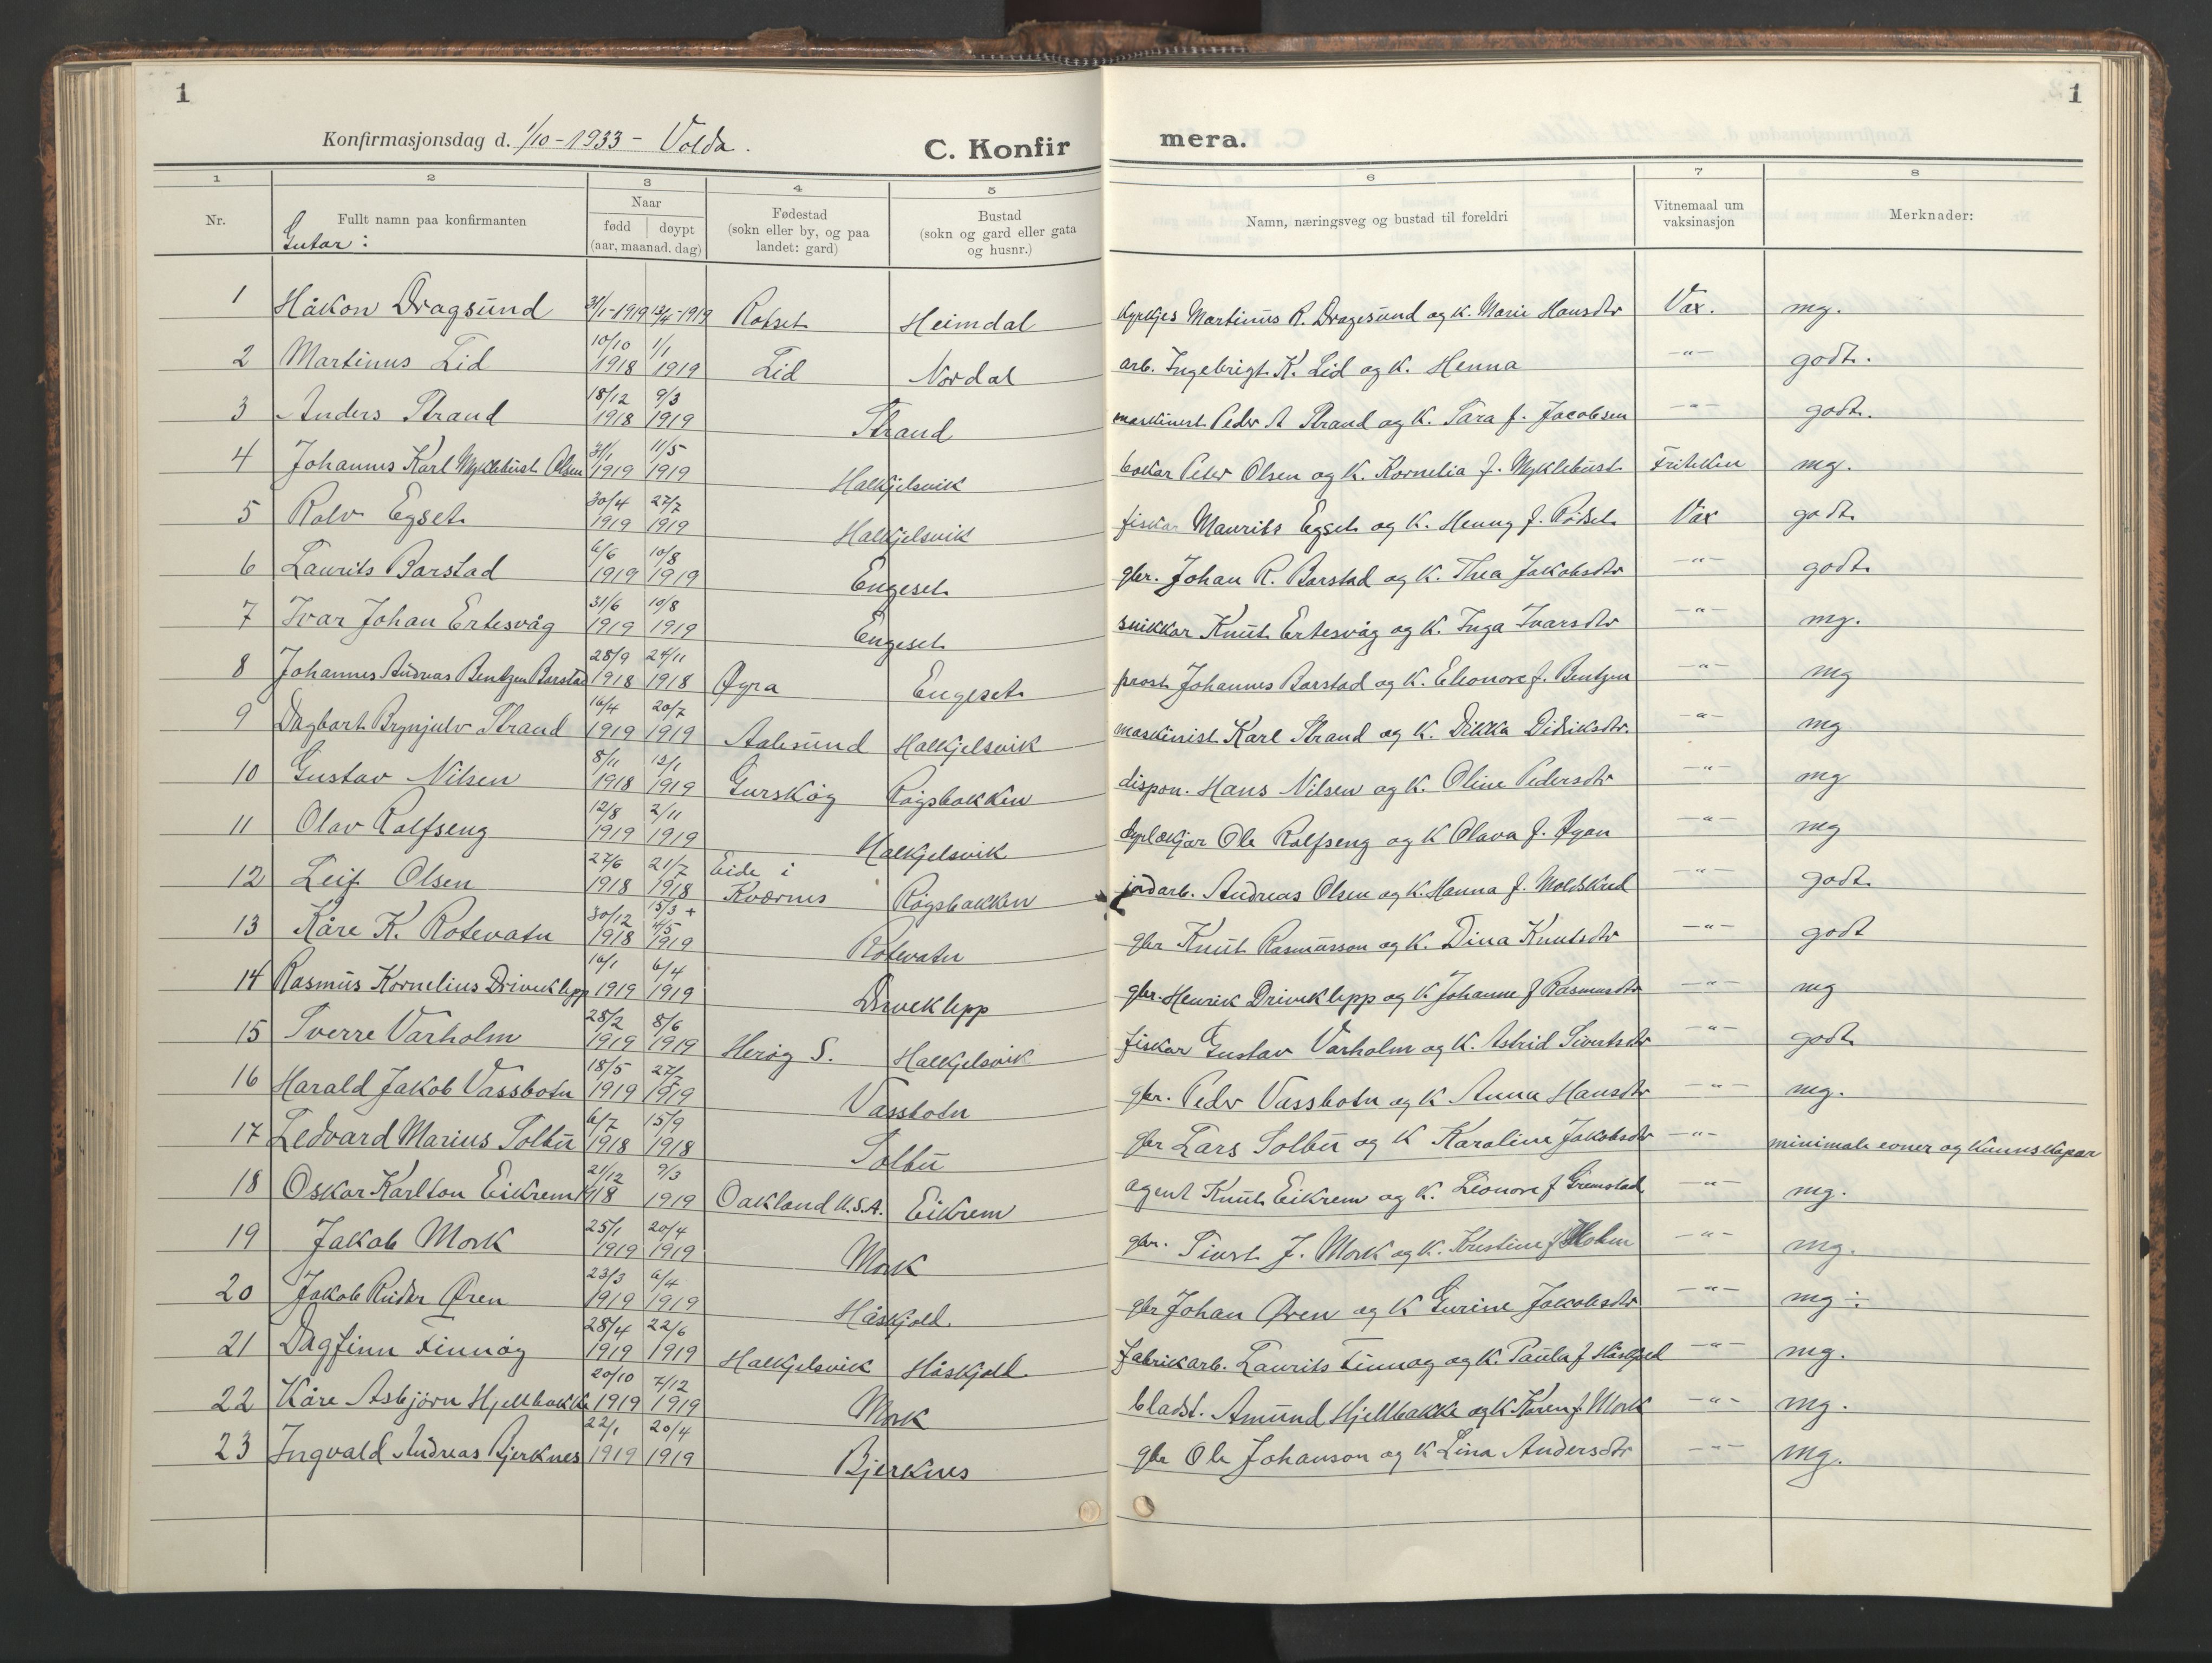 1
1
Konfirmasjonsdag d. 1/10-1933 - Volda.
C. Konfirmera.
1 2 3 4 5 6 7 8
Nr. | Fullt namn paa konfirmanten | Naar født døypt (aar, maanad. dag) | Fødestad (sokn eller by, og paa landet: gard) | Bustad (sokn og gard eller gata og husnr.) | Namn, næringsveg og bustad til foreldri | Vitnemaal um vaksinasjon | Merknader:
Gutar:
1 Håkon Dragsund 31/1-1919 13/4-1919 Rotset Heimdal kyrkjes Martinus R. Dragesund og K. Marie Hansdtr Vax. mg.
2 Martinus Lid 10/10 1918 1/1 1919 Lid Nordal arb. Ingebrigt K. Lid og K. Henna -"- godt.
3 Anders Strand 18/12 1918 9/3 1919 Strand maskinist Peder A Strand og K. Sara f. Jacobsen -"- godt.
4 Johannes Karl Myklebust Olsen 31/1 1919 11/5 1919 Halkjelsvik bakar Peter Olsen og K. Kornelia f. Myklebust Friteken mg.
5 Rolv Egset 30/4 1919 27/7 1919 Halkjelsvik fiskar Maurits Egset og K. Henny f. Rødset Vax godt
6 Laurits Barstad 6/6 1919 10/8 1919 Engeset gbr. Johan R. Barstad og K. Thea Jakobsdtr -"- godt
7 Ivar Johan Ertesvåg 31/6 1919 10/8 1919 Engeset snikkar Knut Ertesvåg og K. Inga Ivarsdtr -"- mg.
8 Johannes Andreas Bentzen Barstad 28/9 1918 24/11 1918 Øyra Engeset prost Johannes Barstad og K. Eleonore f. Bentzen -"- mg
9 Dagbart Brynjulv Strand 16/4 1919 20/7 1919 Aalesund Halkjelsvik maskinist Karl Strand og K. Dikka Didriksdtr. -"- mg
10 Gustav Nilsen 8/11 1918 12/1 1919 Gurskøy Røysbakken dispon. Hans Nilsen og K. Oline Pedersdtr -"- mg
11 Olav Rolfseng 12/8 1919 2/11 1919 Halkjelsvik dyrlækjar Ole Rolfseng og K Olava f. Øyan -"- mg
12 Leif Olsen 27/6 1918 21/7 1918 Eide i Kværnes Røysbakken jordarb. Andreas Olsen og K. Hanna f. Moldskred -"- godt
13 Kåre K. Rotevatn 30/12 1918 15/3 + 4/5 1919 Rotevatn gbr Knut Rasmusson og K. Dina Knutsdtr -"- godt
14 Rasmus Kornelius Driveklepp 16/1 1919 6/4 1919 Driveklepp gbr. Henrik Driveklepp og K Johanne f Rasmusdtr -"- mg
15 Sverre Varholm 28/2 1919 8/6 1919 Herøy S. Halkjelsvik fiskar Gustav Varholm og K. Astrid Sivertsdtr -"- godt
16 Harald Jakob Vassbotn 18/5 1919 27/7 1919 Vassbotn gbr. Peder Vassbotn og K Anna Hansdtr -"- mg.
17 Ledvard Marius Solbu 6/7 1918 15/9 1918 Solbu gbr Lars Solbu og K Karoline Jakobsdtr -"- minimale evner og kunnskapar
18 Oskar Karlton Eikrem 21/12 1918 9/3 1919 Oakland U.S.A. Eikrem agent Knut Eikrem og K. Leonore f Grimstad -"- mg.
19 Jakob Mork 25/1 1919 20/4 1919 Mork gbr. Sivert J. Mork og K. Kristine f Holm -"- mg.
20 Jakob Reidar Øren 23/3 1919 6/4 1919 Håskjold gbr Johan Øren og K Gurine Jakobsdtr -"- mg ÷
21 Dagfinn Finnøy 28/4 1919 22/6 1919 Halkjelsvik Håskjold fabrikarb. Laurits Finnøy og K. Paula f Håskjold -"- mg.
22 Kåre Asbjørn Hjellbakke 20/10 1919 7/12 1919 Mork bladst. Amund Hjellbakke og K Karen f. Mork -"- mg.
23 Ingvald Andreas Bjerknes 22/1 1919 20/4 1919 Bjerknes gbr Ole Johanson og K Lina Andersdtr -"- mg.